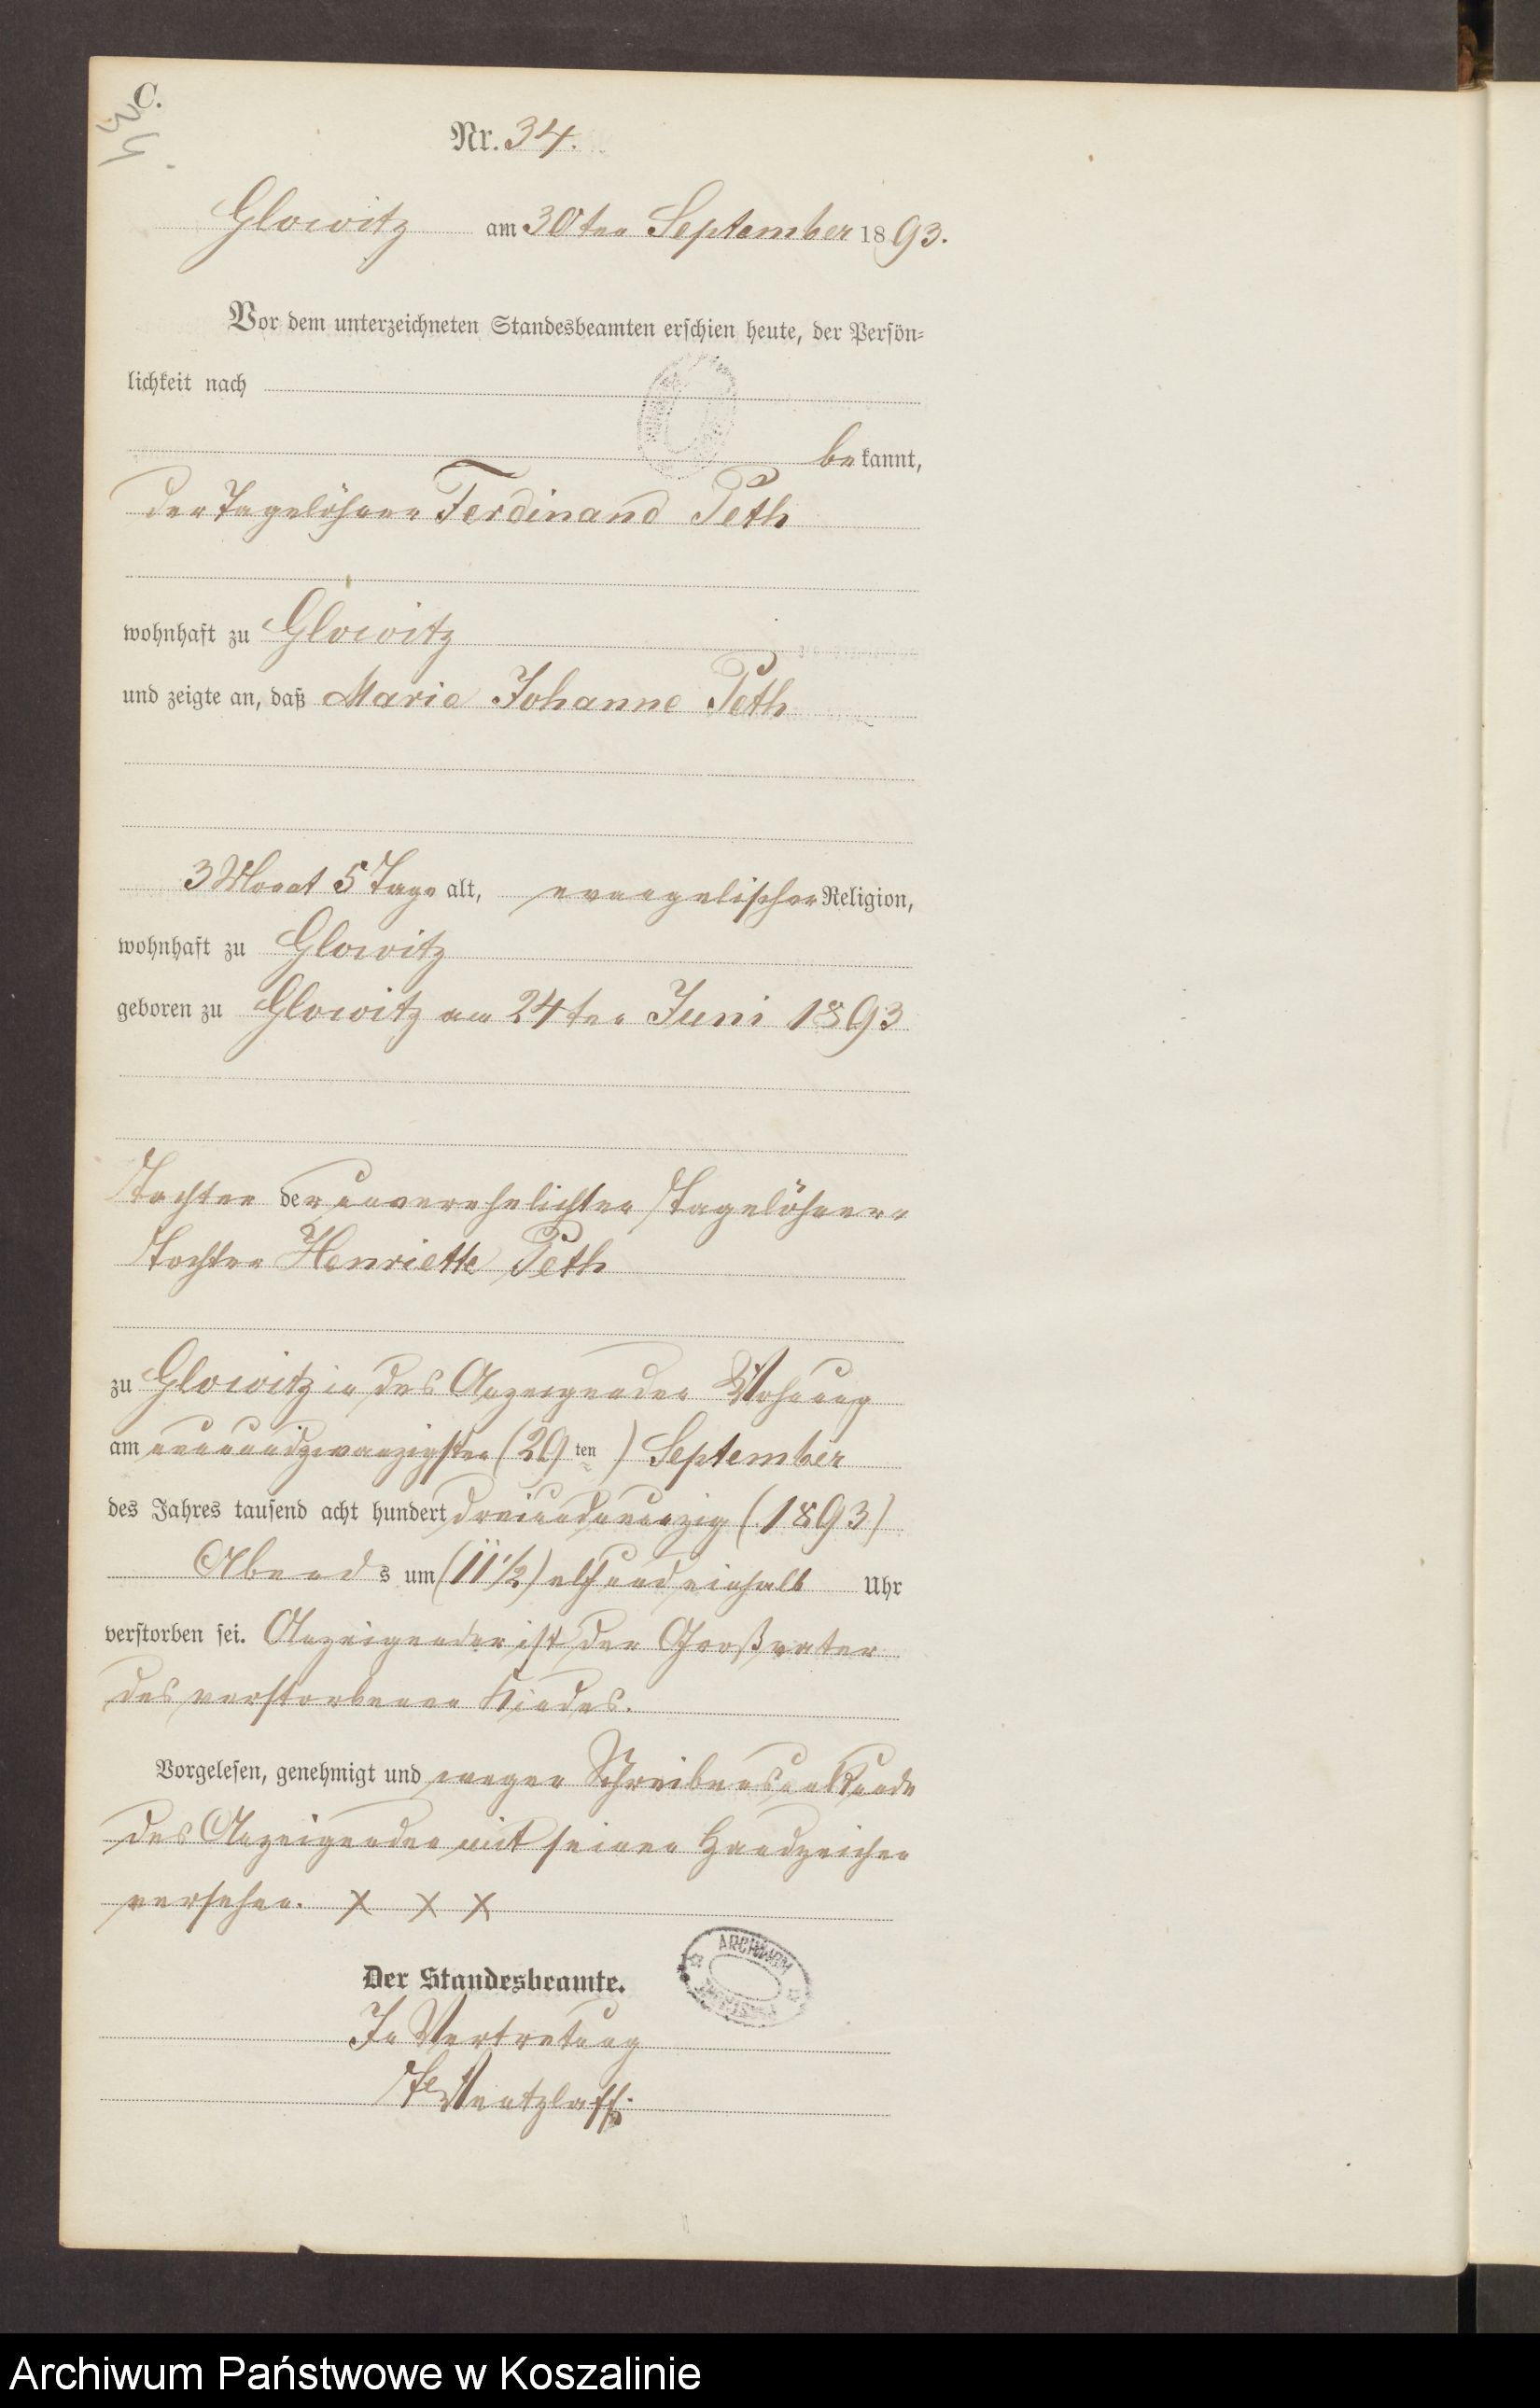 C.
34.
Nr. 34.
Glowitz am 30ten September 1893.
Vor dem unterzeichneten Standesbeamten erschien heute, der Persön-
lichkeit nach
bekannt,
der Tagelöhner Ferdinand Peth
wohnhaft zu Glowitz
und zeigte an, daß Marie Johanne Peth
3 Monat 5 Tage alt, evangelischer Religion,
wohnhaft zu Glowitz
geboren zu Glowitz am 24ten Juni 1893
Tochter der unverehelichten Tagelöhner-
Tochter Henriette Peth
zu Glowitz in des Anzeigenden Wohnung
am neunundzwanzigsten (29ten) September
des Jahres tausend acht hundert dreiundneunzig (1893)
Abends um (11 1/2) elf und einhalb Uhr
verstorben sei. Anzeigender ist der Großvater
des verstorbenen Kindes.
Vorgelesen, genehmigt und wegen Schreibensunkunde
des Anzeigenden mit seinen Handzeichen
versehen. X X X
Der Standesbeamte.
In Vertretung
Wentzlaff.
ARCHIWUM
Archiwum Państwowe w Koszalinie